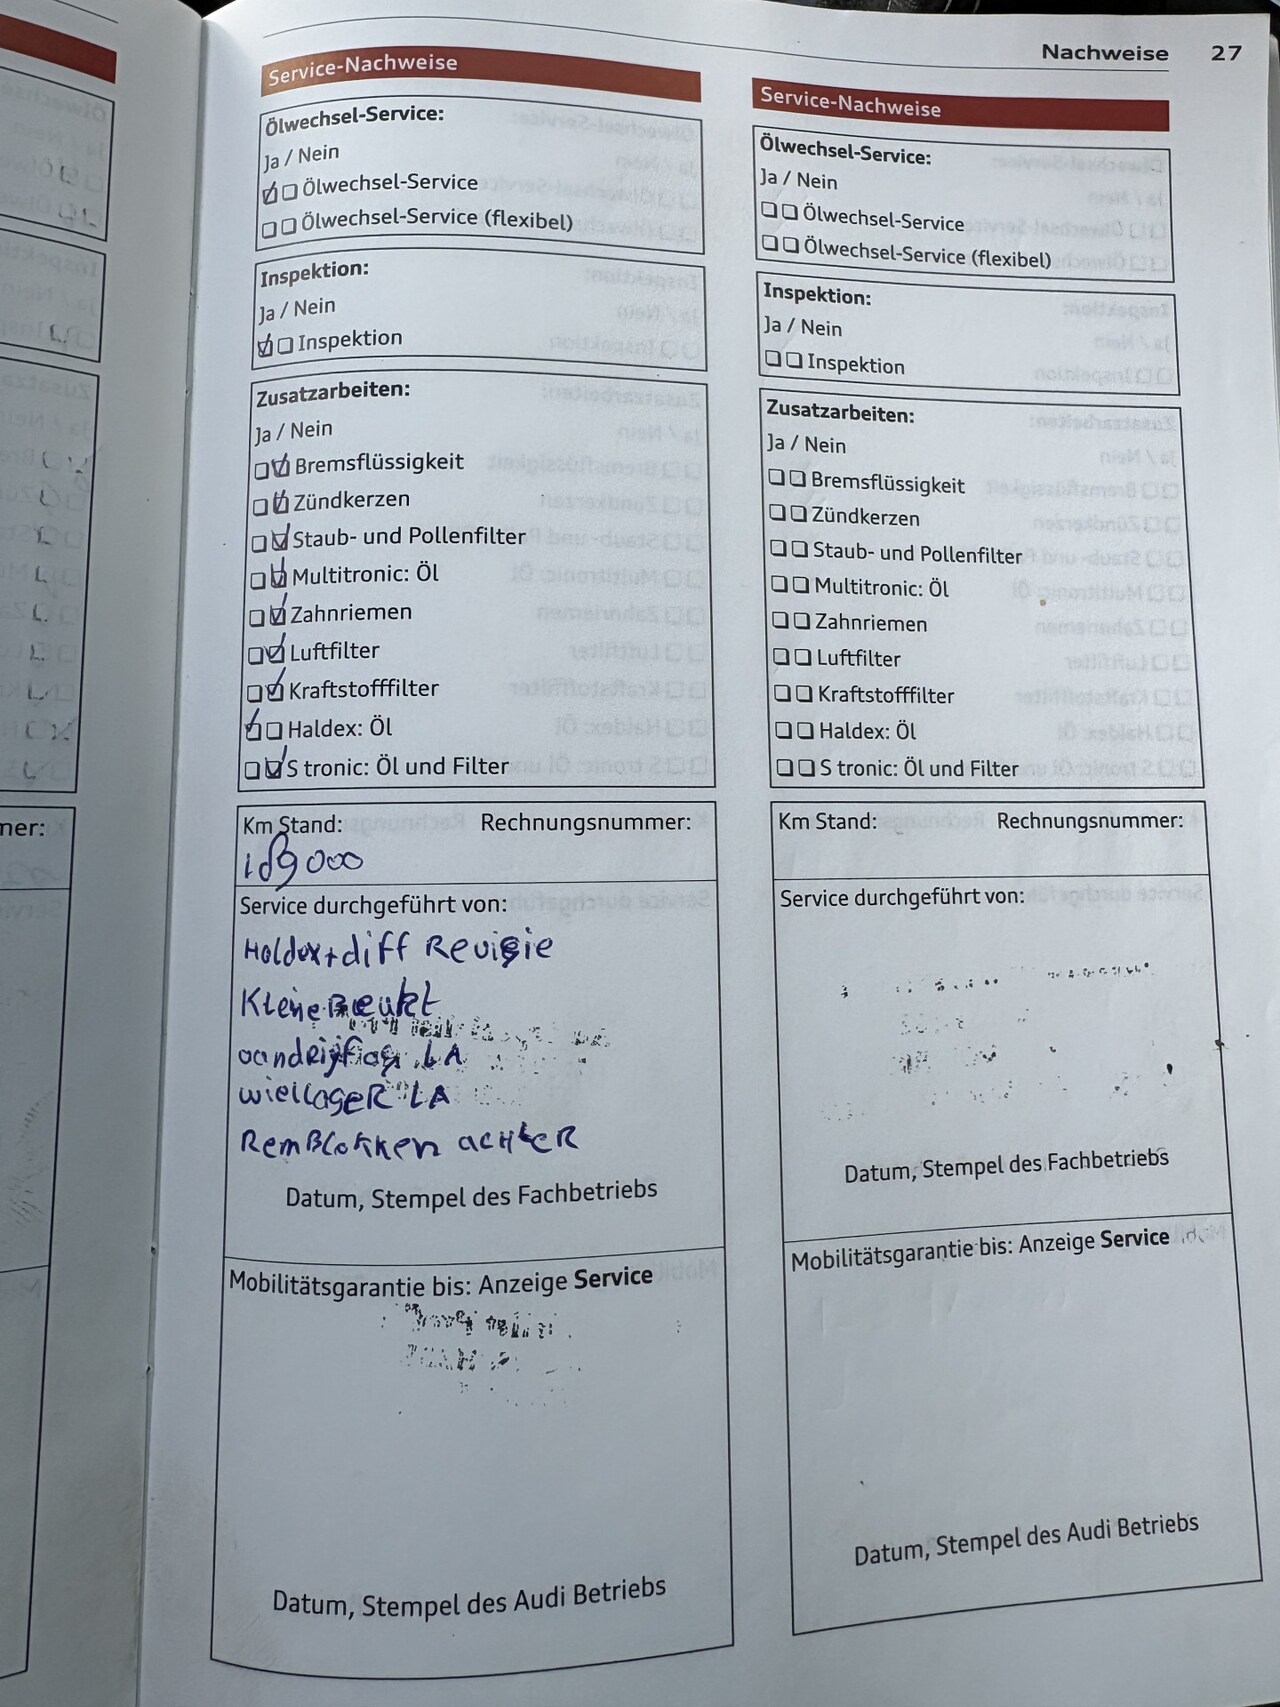 Nachweise 27
Service-Nachweise
Ölwechsel-Service:
Ja / Nein
Ölwechsel-Service
Ölwechsel-Service (flexibel)
Inspektion:
Ja / Nein
Inspektion
Zusatzarbeiten:
Ja / Nein
Bremsflüssigkeit
Zündkerzen
Staub- und Pollenfilter
Multitronic: Öl
Zahnriemen
Luftfilter
Kraftstofffilter
Haldex: Öl
S tronic: Öl und Filter
Km Stand: Rechnungsnummer:
189000
Service durchgeführt von:
Haldex + diff Revisie
Kleine Beurt
aandrijfas LA
wiellager LA
RemBlokken achter
Datum, Stempel des Fachbetriebs
Mobilitätsgarantie bis: Anzeige Service
Datum, Stempel des Audi Betriebs
Service-Nachweise
Ölwechsel-Service:
Ja / Nein
Ölwechsel-Service
Ölwechsel-Service (flexibel)
Inspektion:
Ja / Nein
Inspektion
Zusatzarbeiten:
Ja / Nein
Bremsflüssigkeit
Zündkerzen
Staub- und Pollenfilter
Multitronic: Öl
Zahnriemen
Luftfilter
Kraftstofffilter
Haldex: Öl
S tronic: Öl und Filter
Km Stand: Rechnungsnummer:
Service durchgeführt von:
Datum, Stempel des Fachbetriebs
Mobilitätsgarantie bis: Anzeige Service
Datum, Stempel des Audi Betriebs